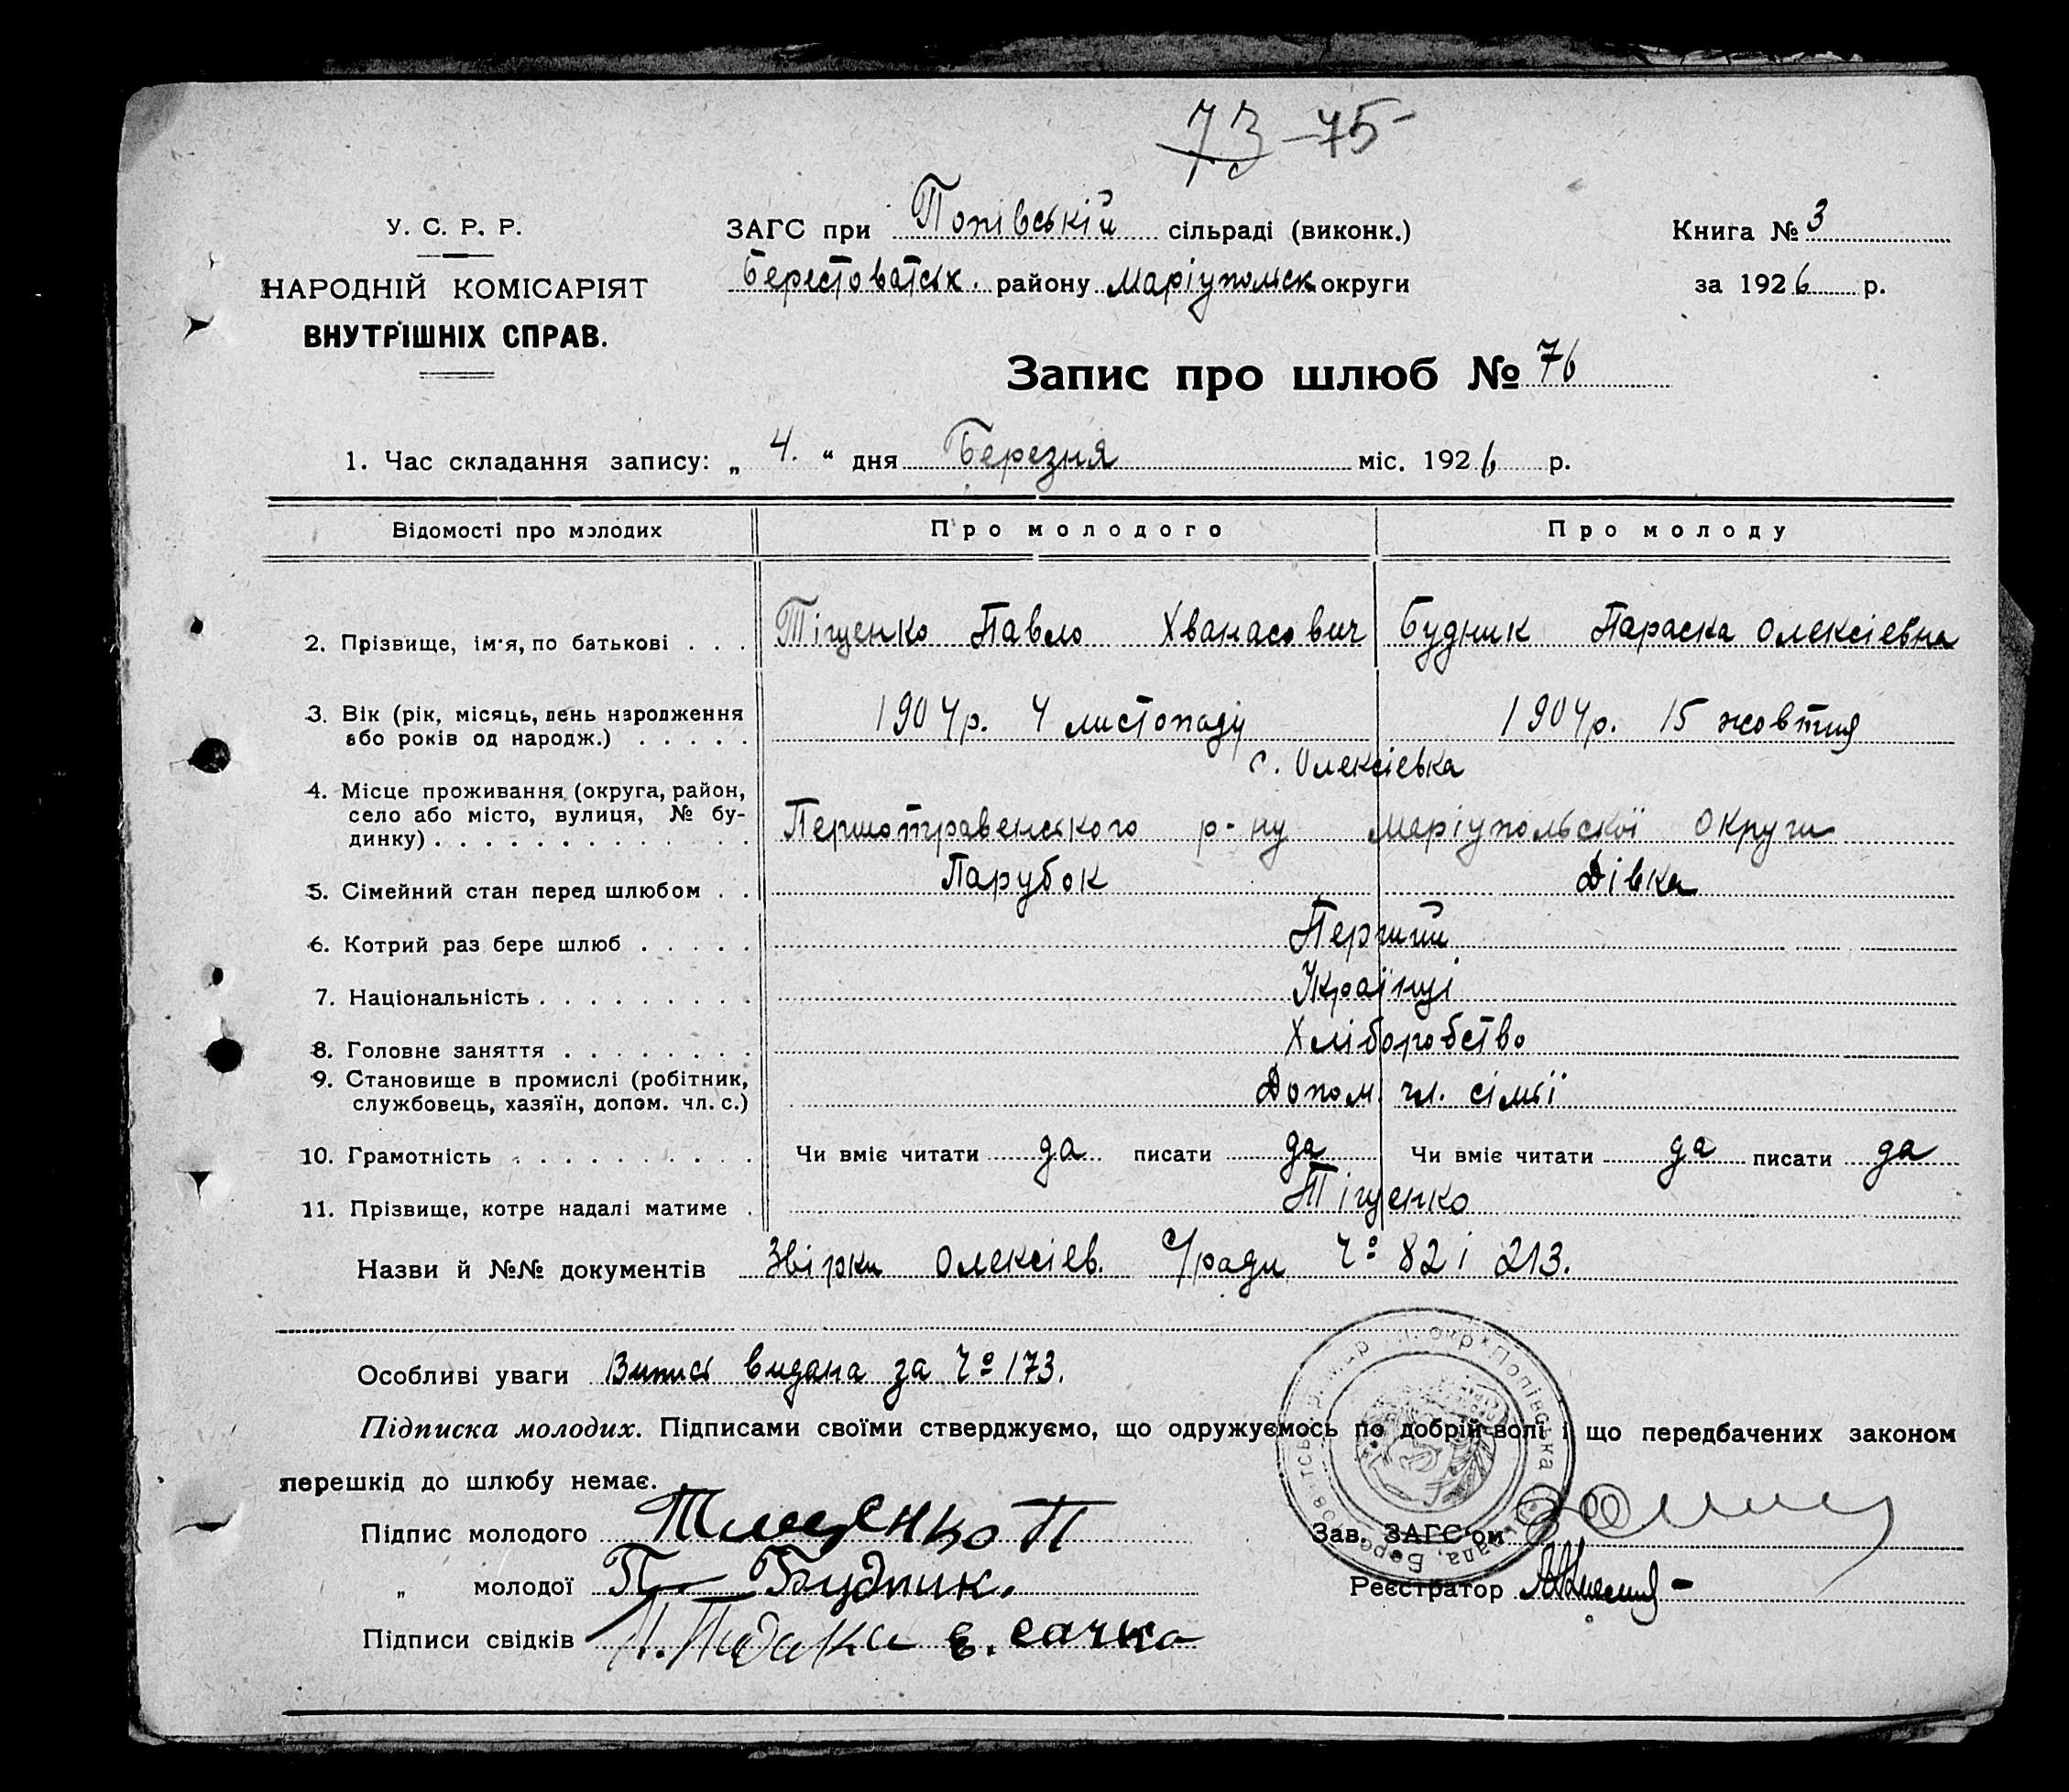 73 - 75 -
У. С. Р. Р.
НАРОДНІЙ КОМІСАРІЯТ
ВНУТРІШНІХ СПРАВ.
ЗАГС при Попівській сільраді (виконк.)
Берестоватськ. району Маріупольськ округи
Книга № 3
за 1926 р.
Запис про шлюб № 76
1. Час складання запису: „ 4. “ дня Березня міс. 1926 р.
Відомості про молодих Про молодого Про молоду
2. Прізвище, ім'я, по батькові . . . Тіщенко Павло Хванасович Будник Параска Олексіевна
3. Вік (рік, місяць, день народження
або років од народж.) . . . . . 1904р. 4 листопаду 1904р. 15 жовтня
с. Олексіевка
4. Місце проживання (округа, район,
село або місто, вулиця, № бу-
динку) . . . . . . . . . . . . Першотравенського р-ну Маріупольської Округи
5. Сімейний стан перед шлюбом . . Парубок Дівка
6. Котрий раз бере шлюб . . . . . Перший
7. Національність . . . . . . . . . Українці
8. Головне заняття . . . . . . . . Хліборобство
9. Становище в промислі (робітник,
службовець, хазяїн, допом. чл. с.) Допом. чл. сімьї
10. Грамотність . . . . . . . . . . Чи вміє читати да писати да Чи вміє читати да писати да
11. Прізвище, котре надалі матиме . Тіщенко
Назви й №№ документів Звірки Олексіев. С/ради Ч° 82 і 213.
Особливі уваги Випись видана за Ч° 173.
Підписка молодих. Підписами своїми стверджуємо, що одружуємось по добрій волі і що передбачених законом
перешкід до шлюбу немає.
Підпис молодого Тищенко П
„ молодої П Будник.
Підписи свідків є. сачко
Зав. ЗАГС'ом
Реєстратор
окр * Попівська рада, Бере